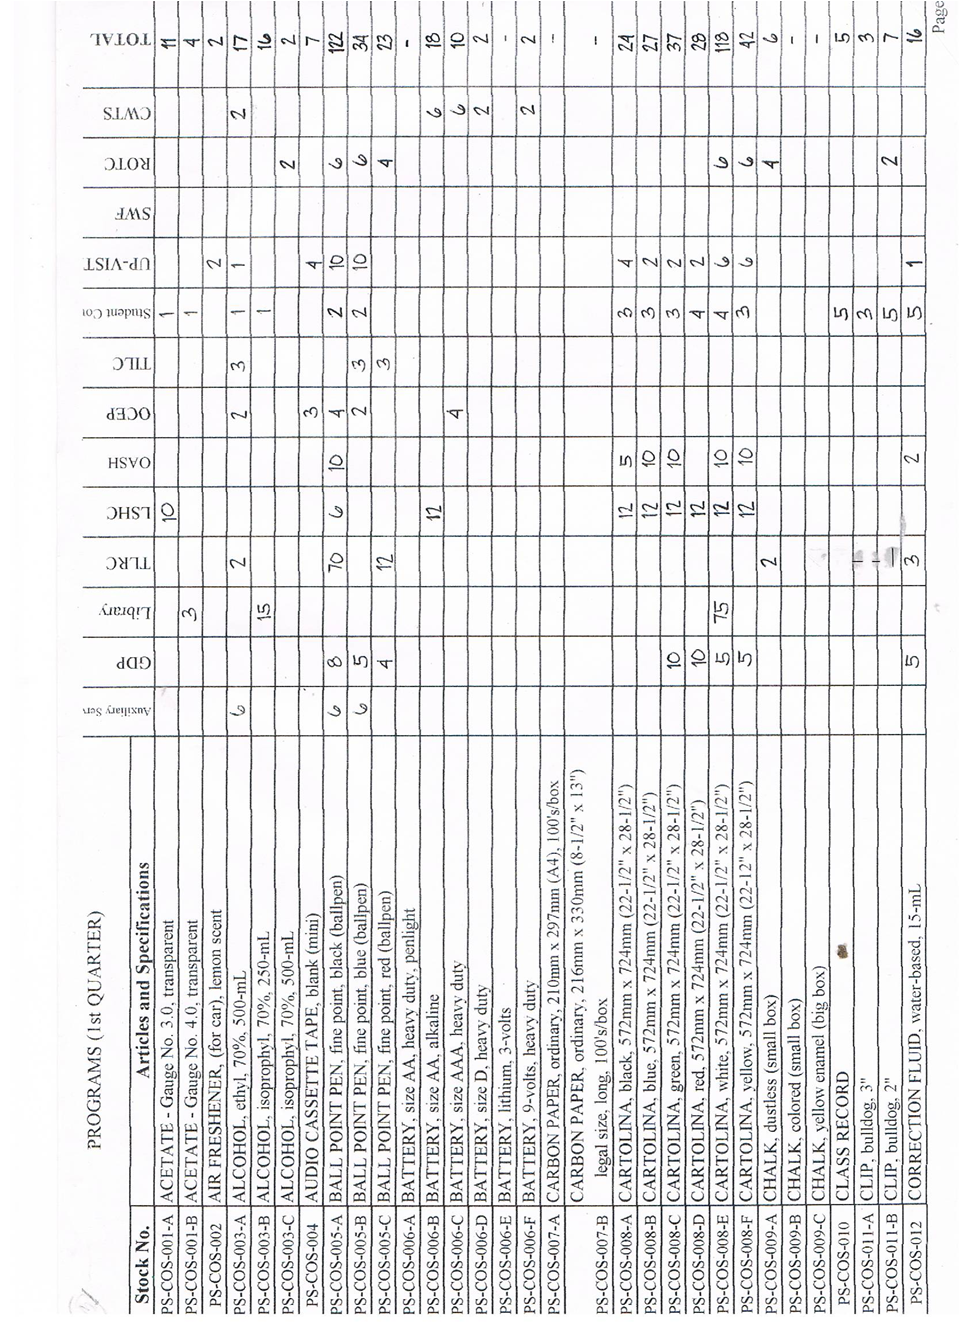 PROGRAMS (1st QUARTER)
Stock No. Articles and Specifications Auxiliary Ser GDP Library TLRC LSHC OASH OCEP TILC Student Cou UP-VIST SWF ROTC CWTS TOTAL
PS-COS-001-A ACETATE - Gauge No. 3.0, transparent 10 1 11
PS-COS-001-B ACETATE - Gauge No. 4.0, transparent 3 1 4
PS-COS-002 AIR FRESHENER, (for car), lemon scent 2 2
PS-COS-003-A ALCOHOL, ethyl, 70%, 500-mL 6 2 2 3 1 1 2 17
PS-COS-003-B ALCOHOL, isoprophyl, 70%, 250-mL 15 1 16
PS-COS-003-C ALCOHOL, isoprophyl, 70%, 500-mL 2 2
PS-COS-004 AUDIO CASSETTE TAPE, blank (mini) 3 4 7
PS-COS-005-A BALL POINT PEN, fine point, black (ballpen) 6 8 70 6 10 4 2 10 6 122
PS-COS-005-B BALL POINT PEN, fine point, blue (ballpen) 6 5 2 3 2 10 6 34
PS-COS-005-C BALL POINT PEN, fine point, red (ballpen) 4 12 3 4 23
PS-COS-006-A BATTERY, size AA, heavy duty, penlight -
PS-COS-006-B BATTERY, size AA, alkaline 12 6 18
PS-COS-006-C BATTERY, size AAA, heavy duty 4 6 10
PS-COS-006-D BATTERY, size D, heavy duty 2 2
PS-COS-006-E BATTERY, lithium, 3-volts -
PS-COS-006-F BATTERY, 9-volts, heavy duty 2 2
PS-COS-007-A CARBON PAPER, ordinary, 210mm x 297mm (A4), 100's/box -
CARBON PAPER, ordinary, 216mm x 330mm (8-1/2" x 13")
PS-COS-007-B legal size, long, 100's/box -
PS-COS-008-A CARTOLINA, black, 572mm x 724mm (22-1/2" x 28-1/2") 12 5 3 4 24
PS-COS-008-B CARTOLINA, blue, 572mm x 724mm (22-1/2" x 28-1/2") 12 10 3 2 27
PS-COS-008-C CARTOLINA, green, 572mm x 724mm (22-1/2" x 28-1/2") 10 12 10 3 2 37
PS-COS-008-D CARTOLINA, red, 572mm x 724mm (22-1/2" x 28-1/2") 10 12 4 2 28
PS-COS-008-E CARTOLINA, white, 572mm x 724mm (22-1/2" x 28-1/2") 5 75 12 10 4 6 6 118
PS-COS-008-F CARTOLINA, yellow, 572mm x 724mm (22-12" x 28-1/2") 5 12 10 3 6 6 42
PS-COS-009-A CHALK, dustless (small box) 2 4 6
PS-COS-009-B CHALK, colored (small box) -
PS-COS-009-C CHALK, yellow enamel (big box) -
PS-COS-010 CLASS RECORD 5 5
PS-COS-011-A CLIP, bulldog, 3" 3 3
PS-COS-011-B CLIP, bulldog, 2" 5 2 7
PS-COS-012 CORRECTION FLUID, water-based, 15-mL 5 3 2 5 1 16
Page